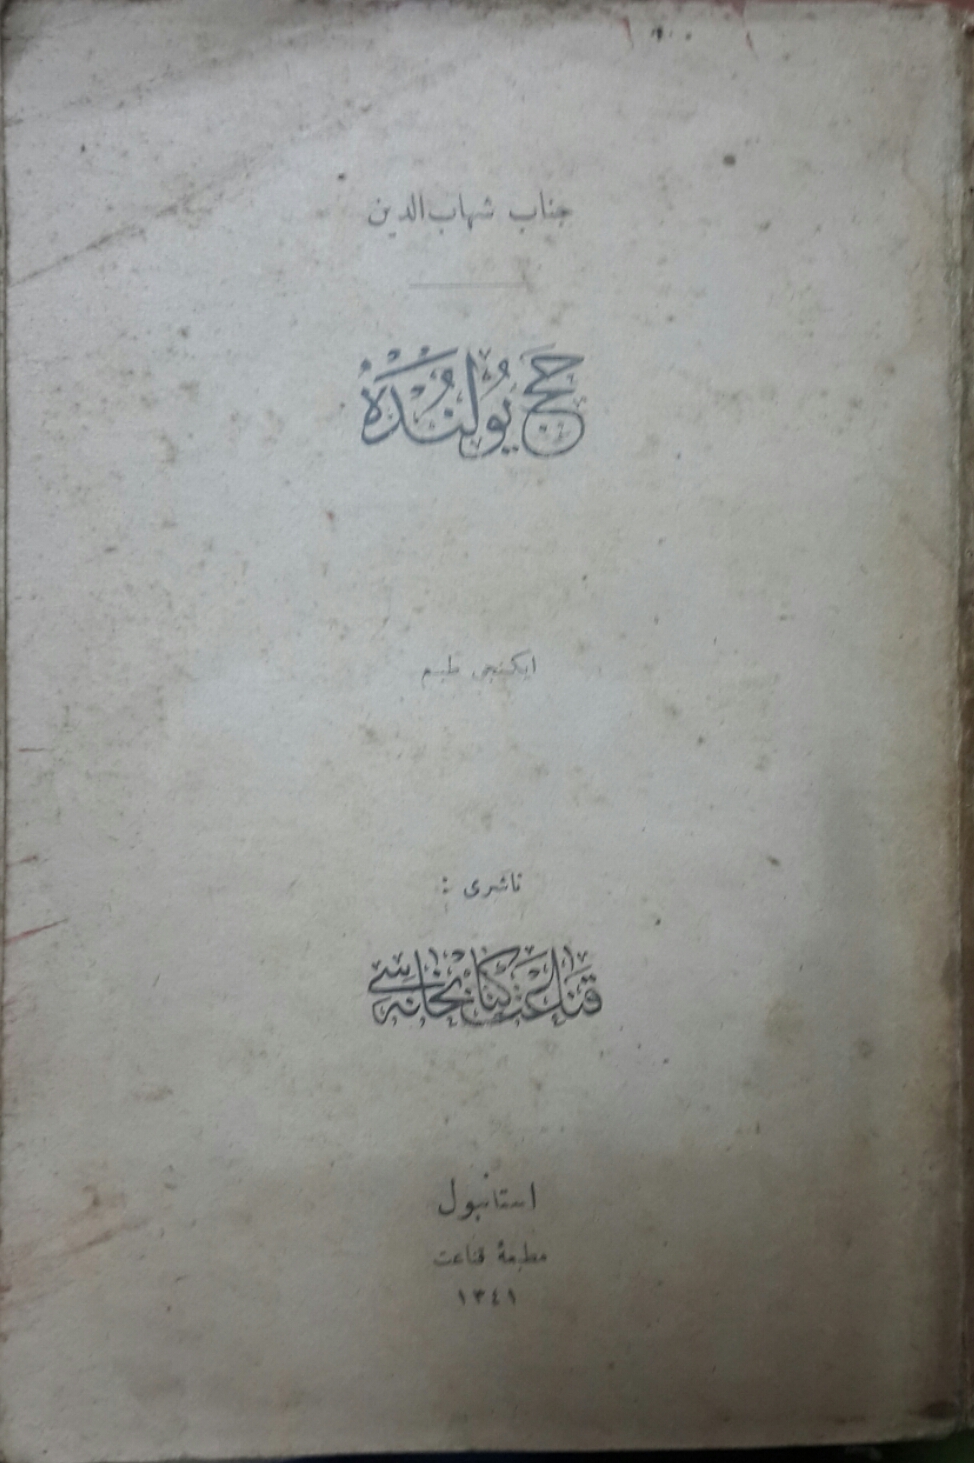 جناب شهاب‌الدین
حج یولنده
ایکنجی طبع
ناشری :
قناعت کتابخانه‌سی
استانبول
مطبعهٔ قناعت
١٣٤١